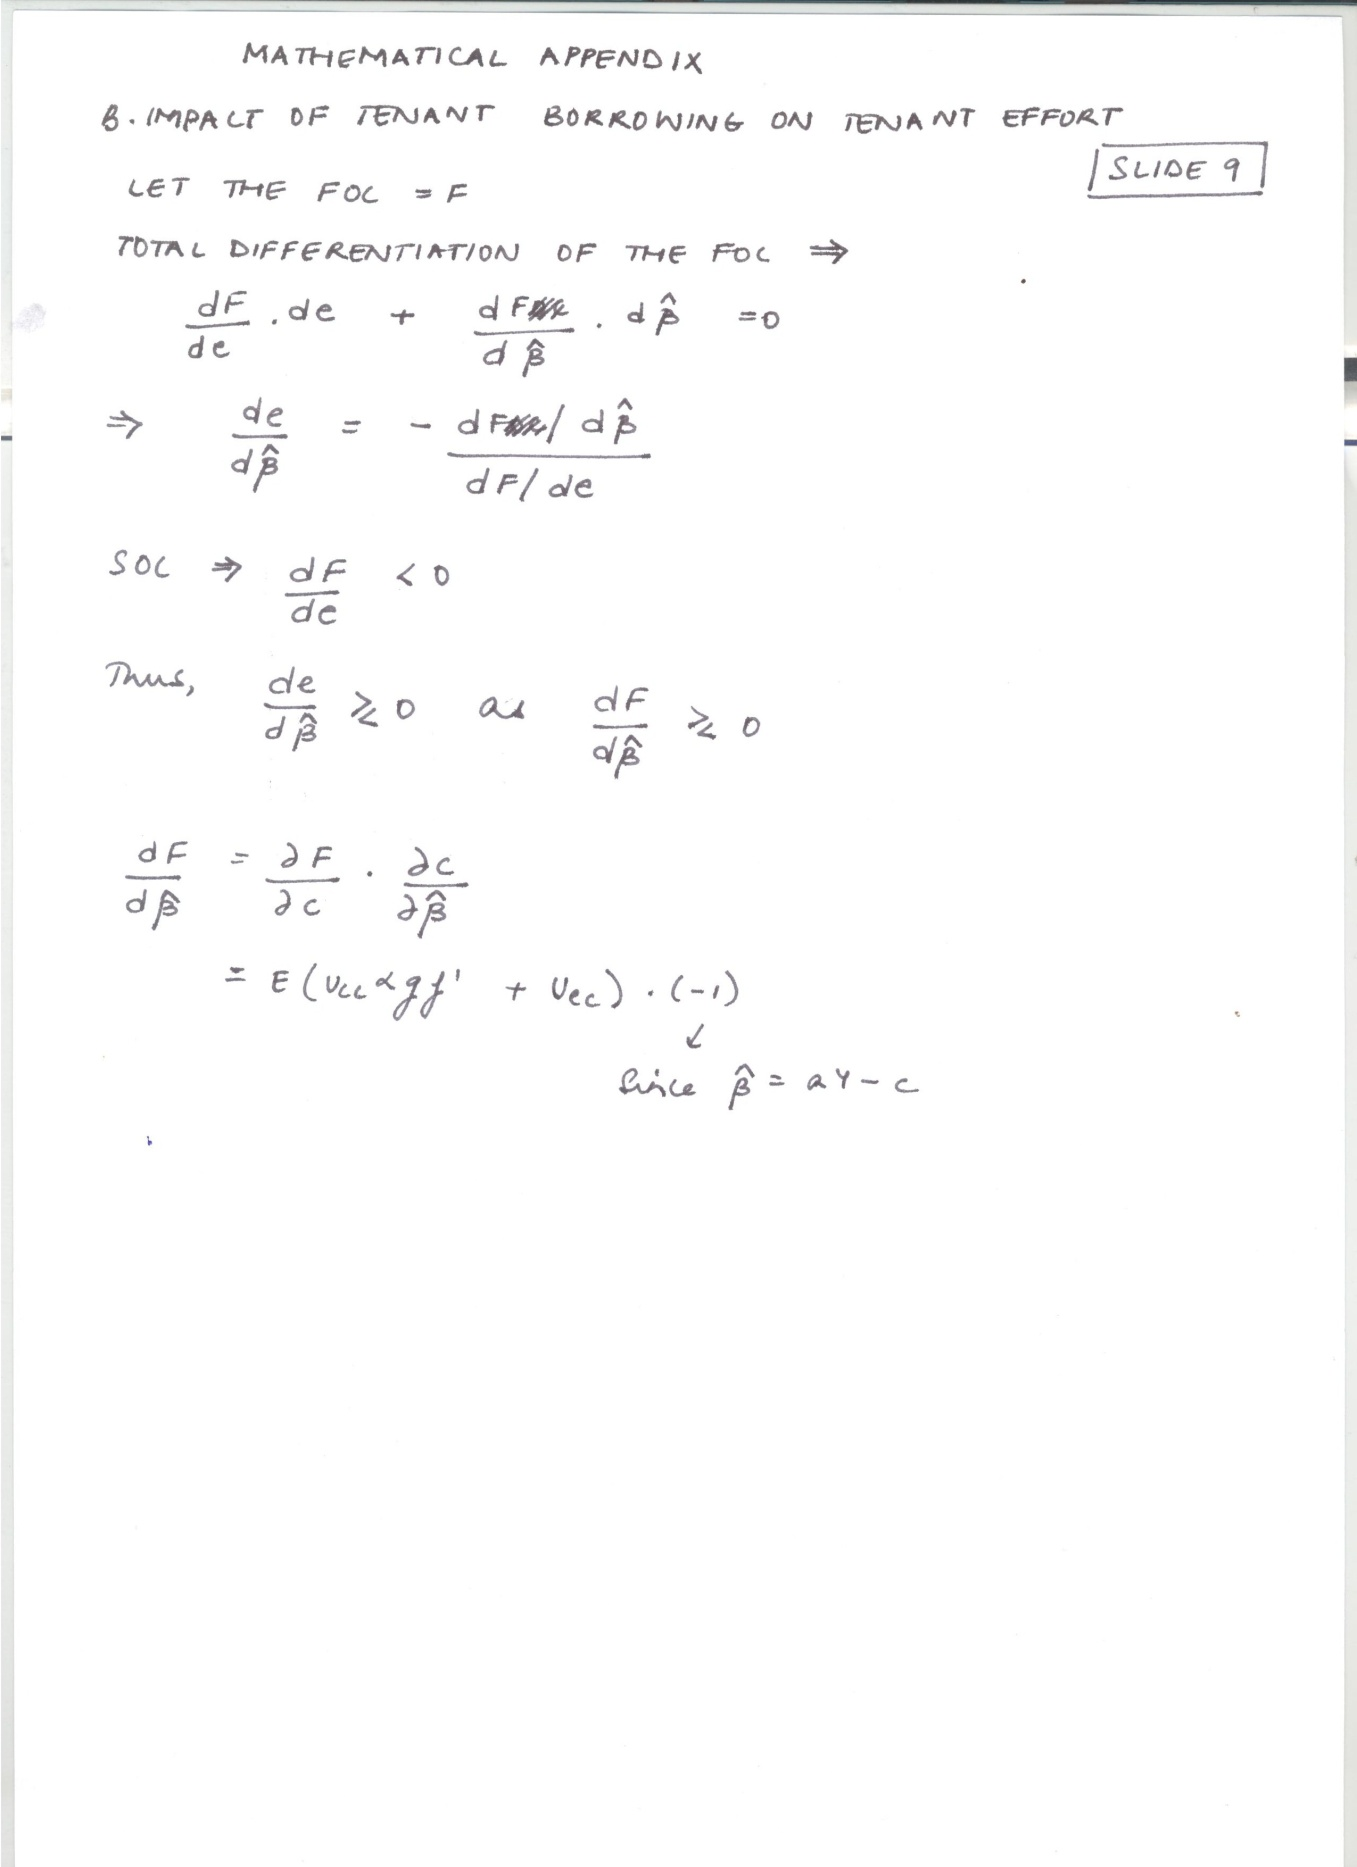 MATHEMATICAL APPENDIX
B. IMPACT OF TENANT BORROWING ON TENANT EFFORT
SLIDE 9
LET THE FOC = F
TOTAL DIFFERENTIATION OF THE FOC ⇒
dF/de . de + dF/dβ̂ . dβ̂ = 0
⇒ de/dβ̂ = - (dF/dβ̂)/(dF/de)
SOC ⇒ dF/de < 0
Thus, de/dβ̂ ⪌ 0 as dF/dβ̂ ⪌ 0
dF/dβ̂ = ∂F/∂c . ∂c/∂β̂
= E (Ucc αgf' + Uec) . (-1)
↓
Since β̂ = αY - c